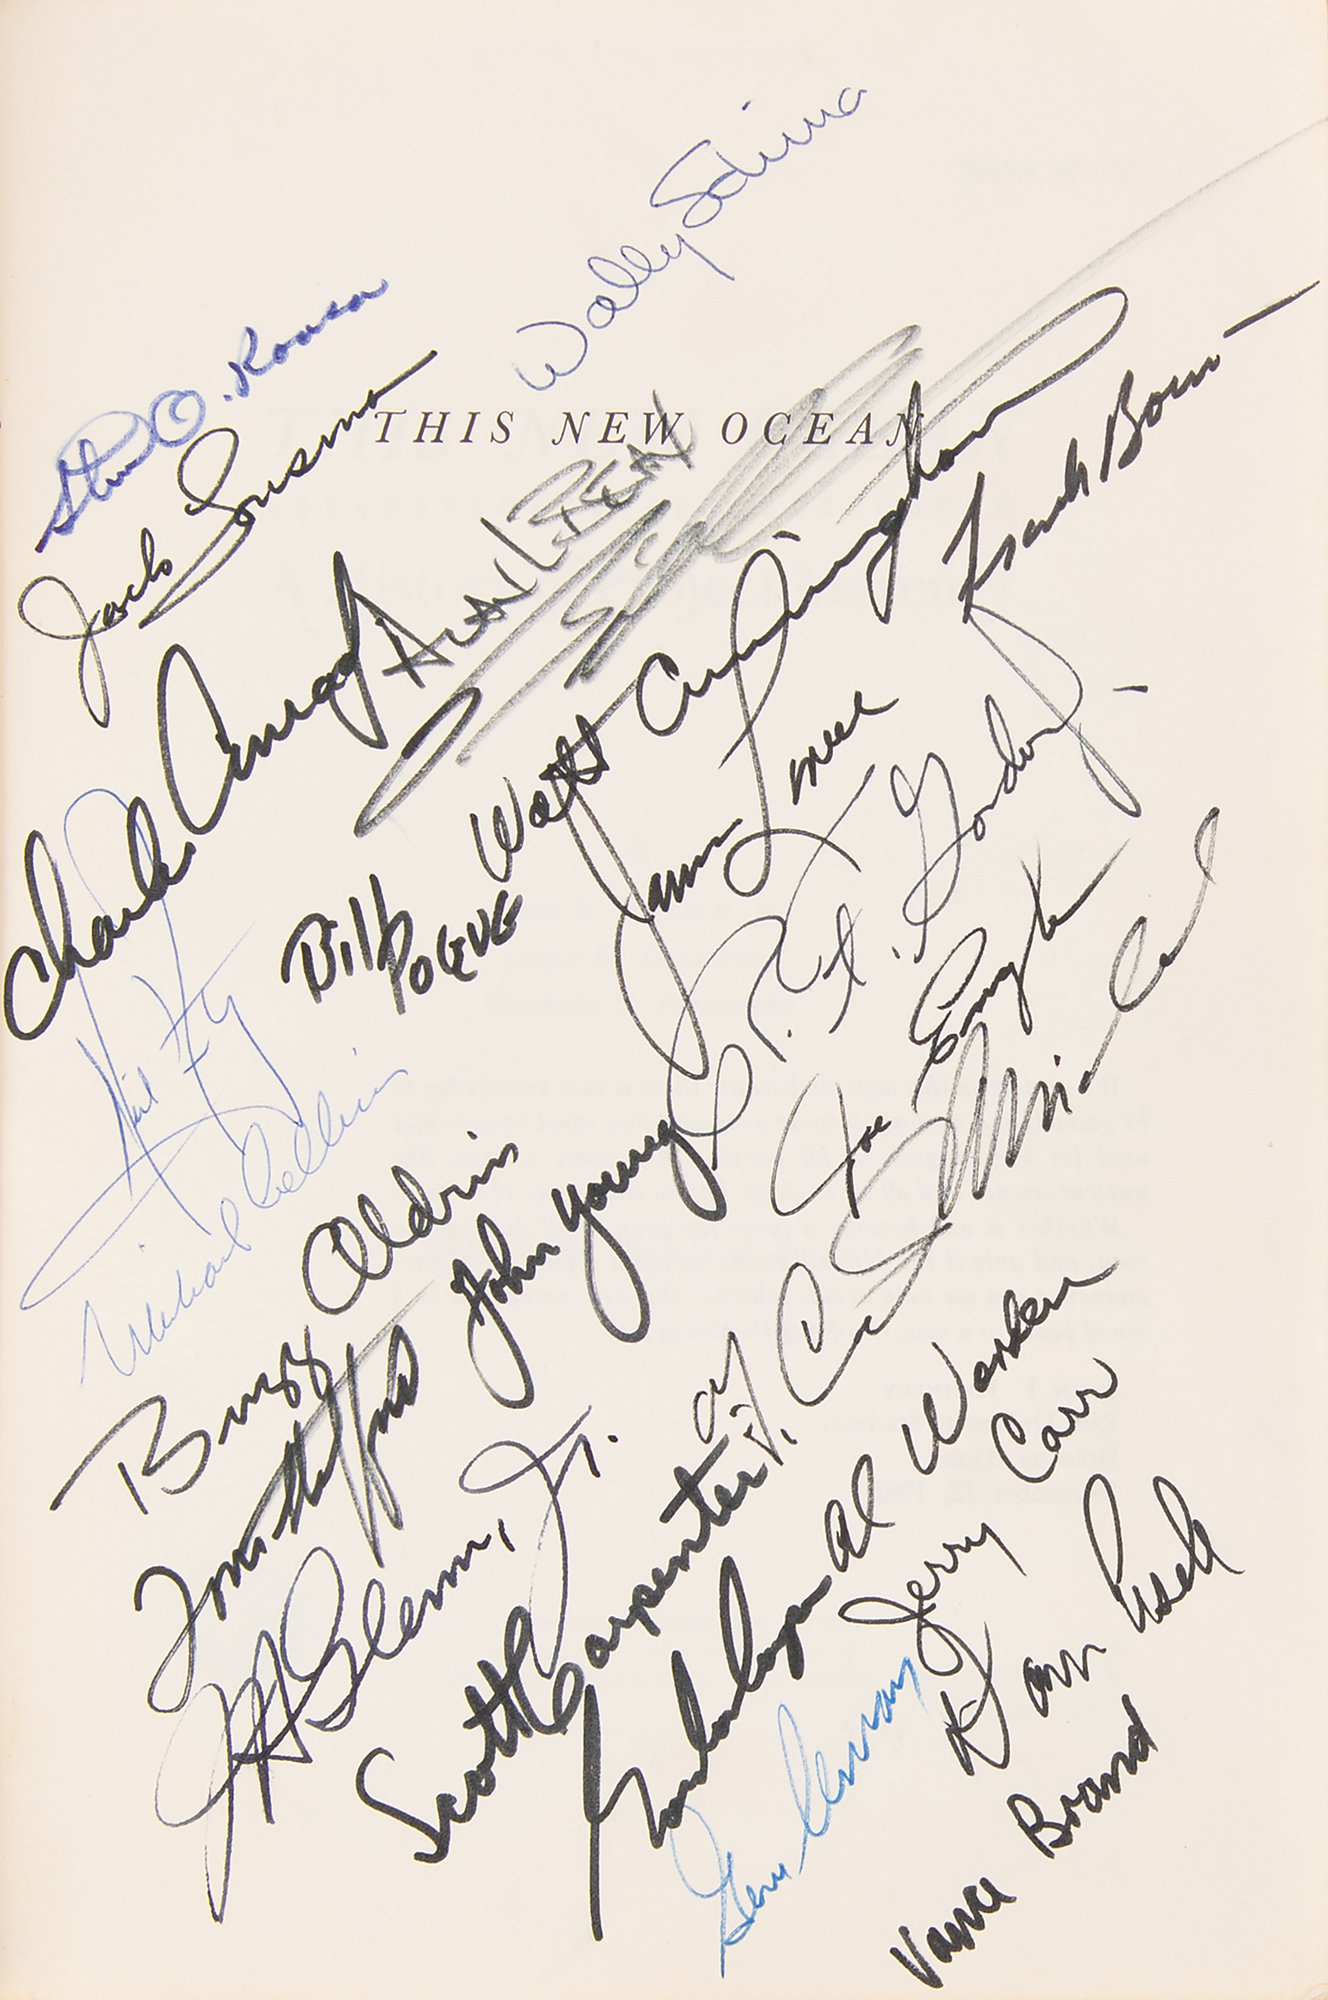 Wally Schirra
Stu O. Roosa
Jack Lousma
THIS NEW OCEAN
ALAN BEAN
Charles Conrad
Walt Cunningham
Frank Borman
James Lovell
R. F. Gordon, Jr.
Bill POGUE
Neil
Michael Collins
Buzz Aldrin
John Young
Joe Engle
Tom Stafford
JH Glenn, Jr.
Scott Carpenter
Al Worden
Jerry Carr
Gordon Cooper
Gene Cernan
Vance Brand